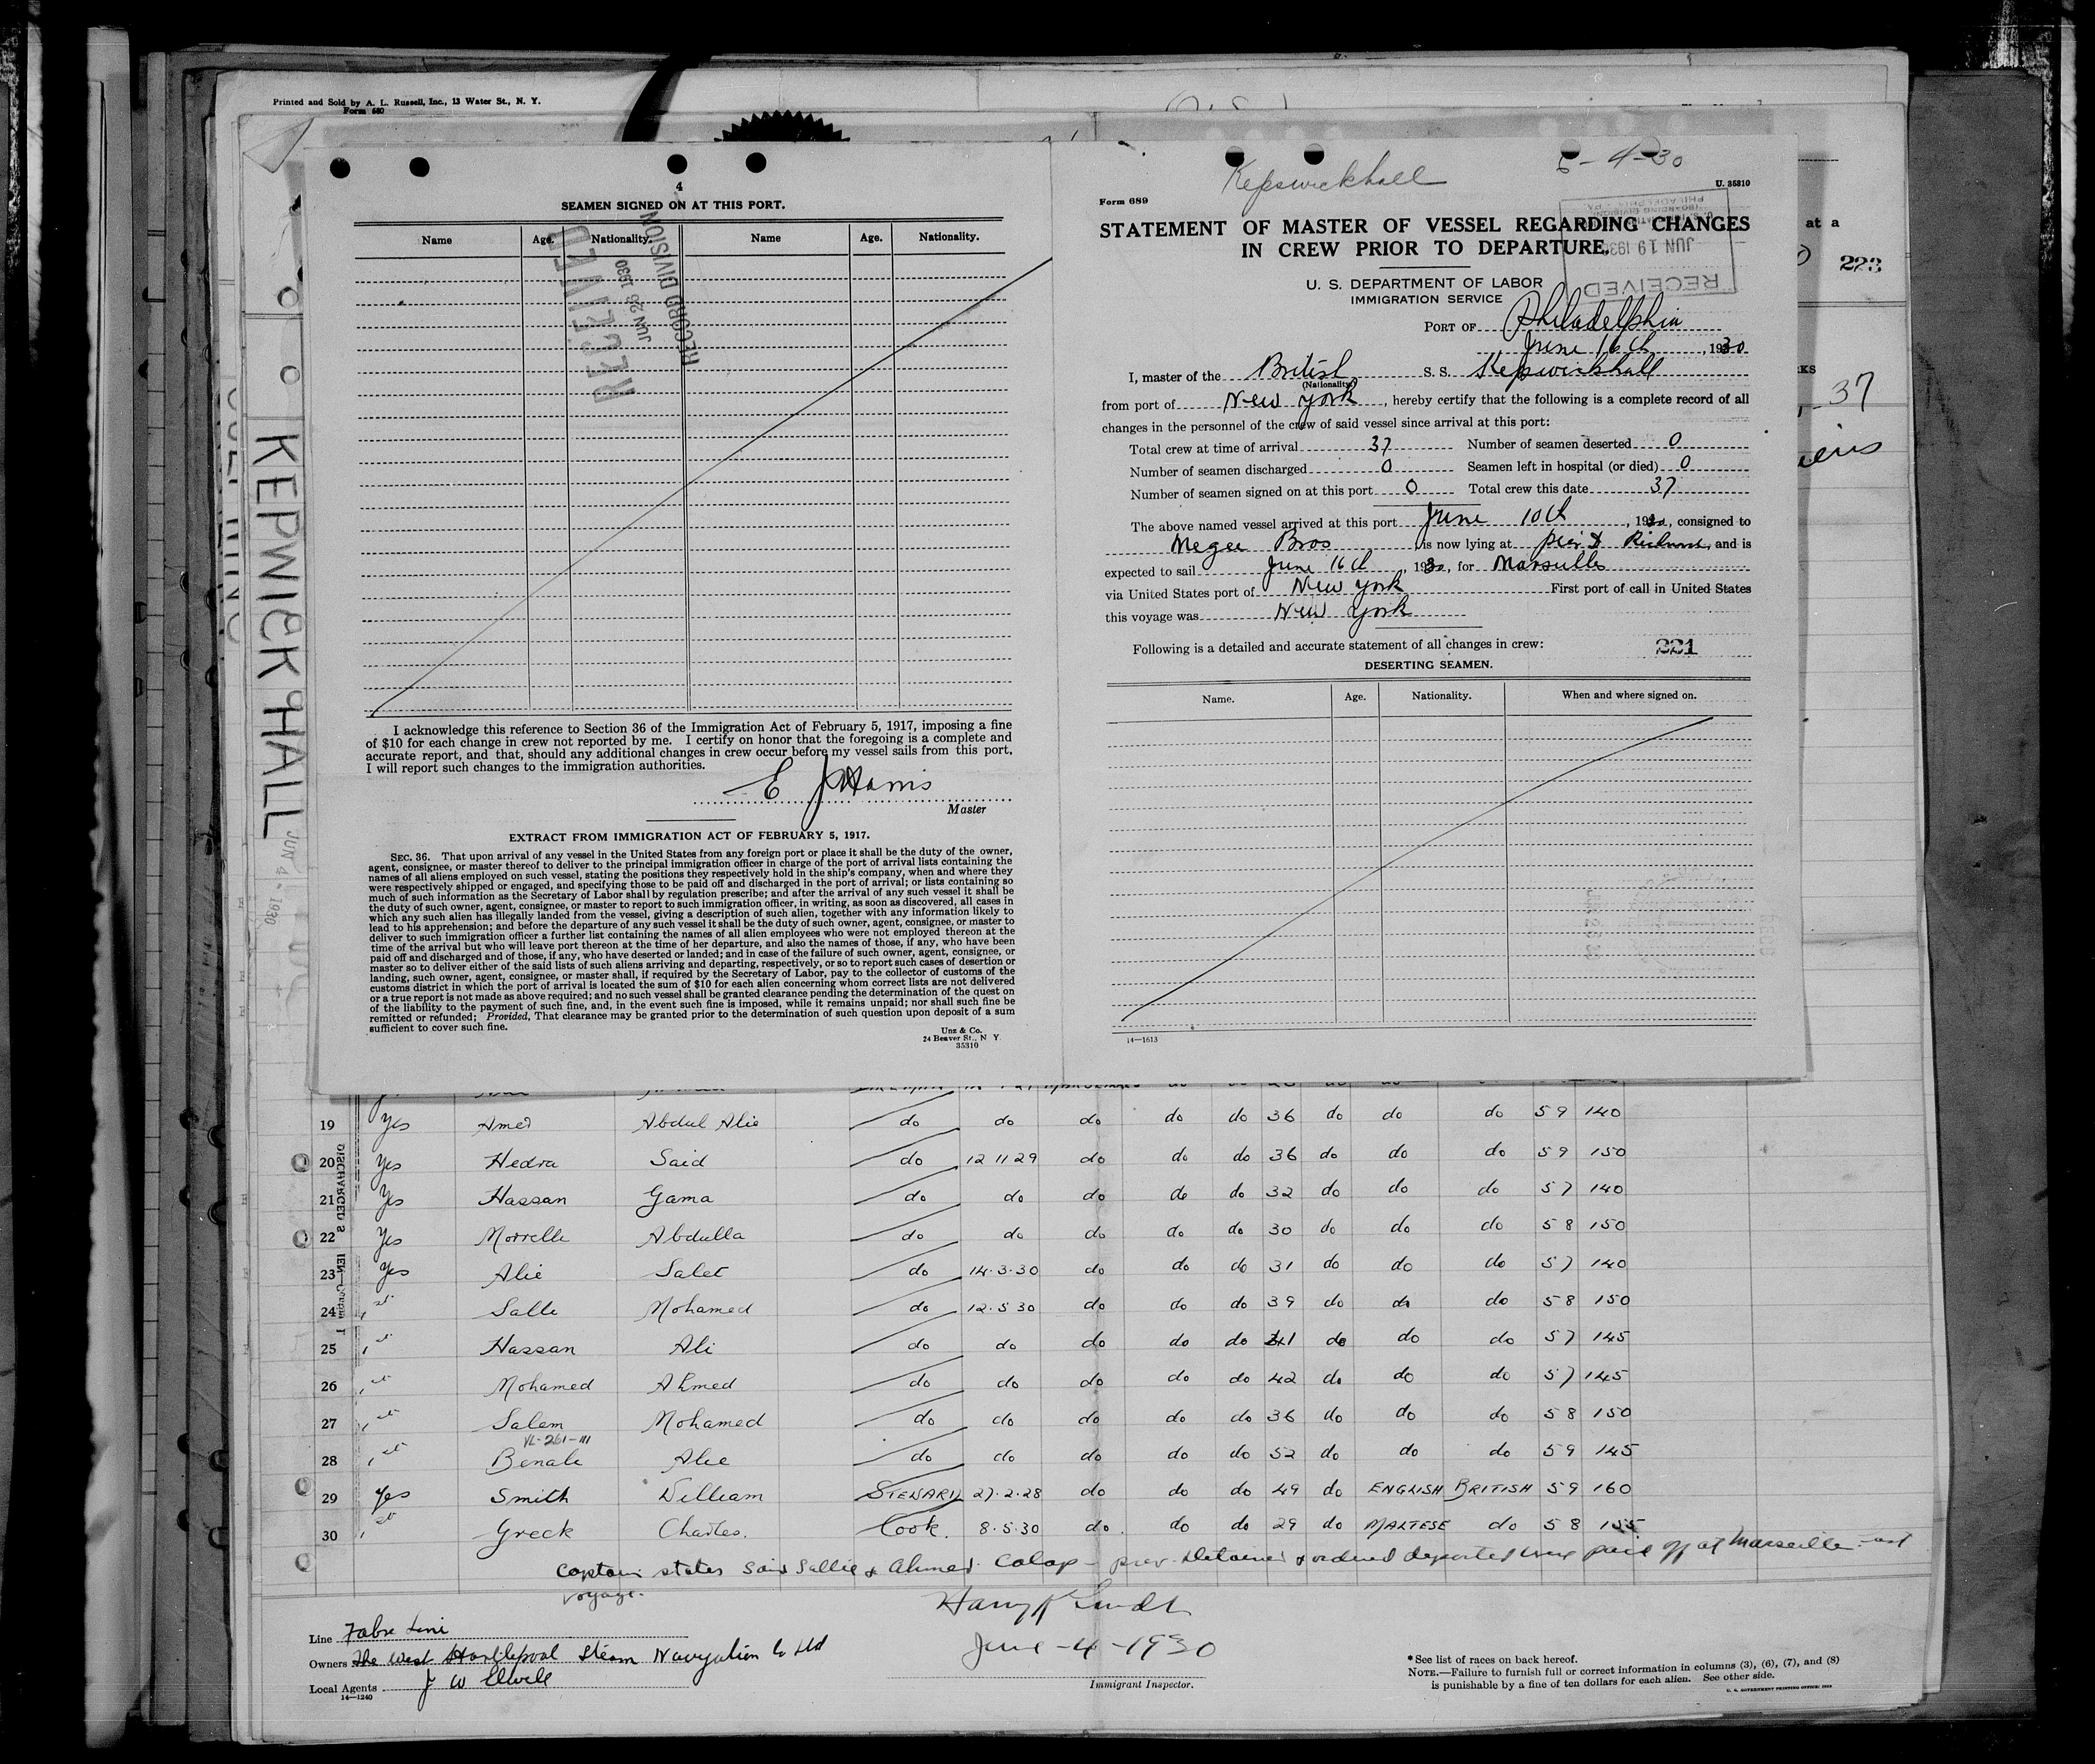 Printed and Sold by A. L. Russell, Inc., 13 Water St., N. Y.
Form 680
at a
223
37
KEPWICK HALL
JUN 4 - 1930
4
SEAMEN SIGNED ON AT THIS PORT.
Name Age. Nationality. Name Age. Nationality.
RECEIVED
JUN 26 1930
RECORD DIVISION
I acknowledge this reference to Section 36 of the Immigration Act of February 5, 1917, imposing a fine
of $10 for each change in crew not reported by me. I certify on honor that the foregoing is a complete and
accurate report, and that, should any additional changes in crew occur before my vessel sails from this port,
I will report such changes to the immigration authorities.
E J Harris
Master
EXTRACT FROM IMMIGRATION ACT OF FEBRUARY 5, 1917.
SEC. 36. That upon arrival of any vessel in the United States from any foreign port or place it shall be the duty of the owner,
agent, consignee, or master thereof to deliver to the principal immigration officer in charge of the port of arrival lists containing the
names of all aliens employed on such vessel, stating the positions they respectively hold in the ship's company, when and where they
were respectively shipped or engaged, and specifying those to be paid off and discharged in the port of arrival; or lists containing so
much of such information as the Secretary of Labor shall by regulation prescribe; and after the arrival of any such vessel it shall be
the duty of such owner, agent, consignee, or master to report to such immigration officer, in writing, as soon as discovered, all cases in
which any such alien has illegally landed from the vessel, giving a description of such alien, together with any information likely to
lead to his apprehension; and before the departure of any such vessel it shall be the duty of such owner, agent, consignee, or master to
deliver to such immigration officer a further list containing the names of all alien employees who were not employed thereon at the
time of the arrival but who will leave port thereon at the time of her departure, and also the names of those, if any, who have been
paid off and discharged and of those, if any, who have deserted or landed; and in case of the failure of such owner, agent, consignee, or
master so to deliver either of the said lists of such aliens arriving and departing, respectively, or so to report such cases of desertion or
landing, such owner, agent, consignee, or master shall, if required by the Secretary of Labor, pay to the collector of customs of the
customs district in which the port of arrival is located the sum of $10 for each alien concerning whom correct lists are not delivered
or a true report is not made as above required; and no such vessel shall be granted clearance pending the determination of the quest on
of the liability to the payment of such fine, and, in the event such fine is imposed, while it remains unpaid; nor shall such fine be
remitted or refunded; Provided, That clearance may be granted prior to the determination of such question upon deposit of a sum
sufficient to cover such fine.
Unz & Co.
24 Beaver St., N Y.
35310
Kepswickhall 6-4-30
U. 35310
Form 689
STATEMENT OF MASTER OF VESSEL REGARDING CHANGES
IN CREW PRIOR TO DEPARTURE.
JUN 19 1930
RECEIVED
U. S. DEPARTMENT OF LABOR
IMMIGRATION SERVICE
PORT OF Philadelphia
June 16th, 1930
I, master of the British S. S. Kepswickhall
(Nationality)
from port of New York, hereby certify that the following is a complete record of all
changes in the personnel of the crew of said vessel since arrival at this port:
Total crew at time of arrival 37 Number of seamen deserted 0
Number of seamen discharged 0 Seamen left in hospital (or died) 0
Number of seamen signed on at this port 0 Total crew this date 37
The above named vessel arrived at this port June 10th, 1930, consigned to
Megee Bros is now lying at pier Richmd, and is
expected to sail June 16th, 1930, for Marseilles
via United States port of New York First port of call in United States
this voyage was New York
Following is a detailed and accurate statement of all changes in crew: 221
DESERTING SEAMEN.
Name. Age. Nationality. When and where signed on.
14—1613
19 Yes Amed Abdul Alie do do do do do 36 do do do 5 9 140
20 Yes Hedra Said do 12 11 29 do do do 36 do do do 5 9 150
21 Yes Hassan Gama do do do do do 32 do do do 5 7 140
22 Yes Morrelle Abdulla do do do do do 30 do do do 5 8 150
23 Yes Alie Salet do 14.3.30 do do do 31 do do do 5 7 140
24 1st Salle Mohamed do 12.5 30 do do do 39 do do do 5 8 150
25 1st Hassan Ali do do do do do 41 do do do 5 7 145
26 1st Mohamed Ahmed do do do do do 42 do do do 5 7 145
27 1st Salem Mohamed do do do do do 36 do do do 5 8 150
VL-261-111
28 1st Benale Alee do do do do do 52 do do do 5 9 145
29 Yes Smith William STEWARD 27.2.28 do do do 49 do ENGLISH BRITISH 5 9 160
30 1st Greck Charles. Cook. 8.5.30 do. do do 29 do MALTESE do 5 8 155
Captain states Said Sallie & Ahmed Calap - prev. detained & ordered deported were paid off at Marseille last
voyage.
Harry
June-4-1930
Immigrant Inspector.
Line Fabre Line
Owners The West Hartlepool Steam Navigation Co Ltd
Local Agents J W Elwell
14—1240
*See list of races on back hereof.
NOTE.—Failure to furnish full or correct information in columns (3), (6), (7), and (8)
is punishable by a fine of ten dollars for each alien. See other side.
U. S. GOVERNMENT PRINTING OFFICE: 1929